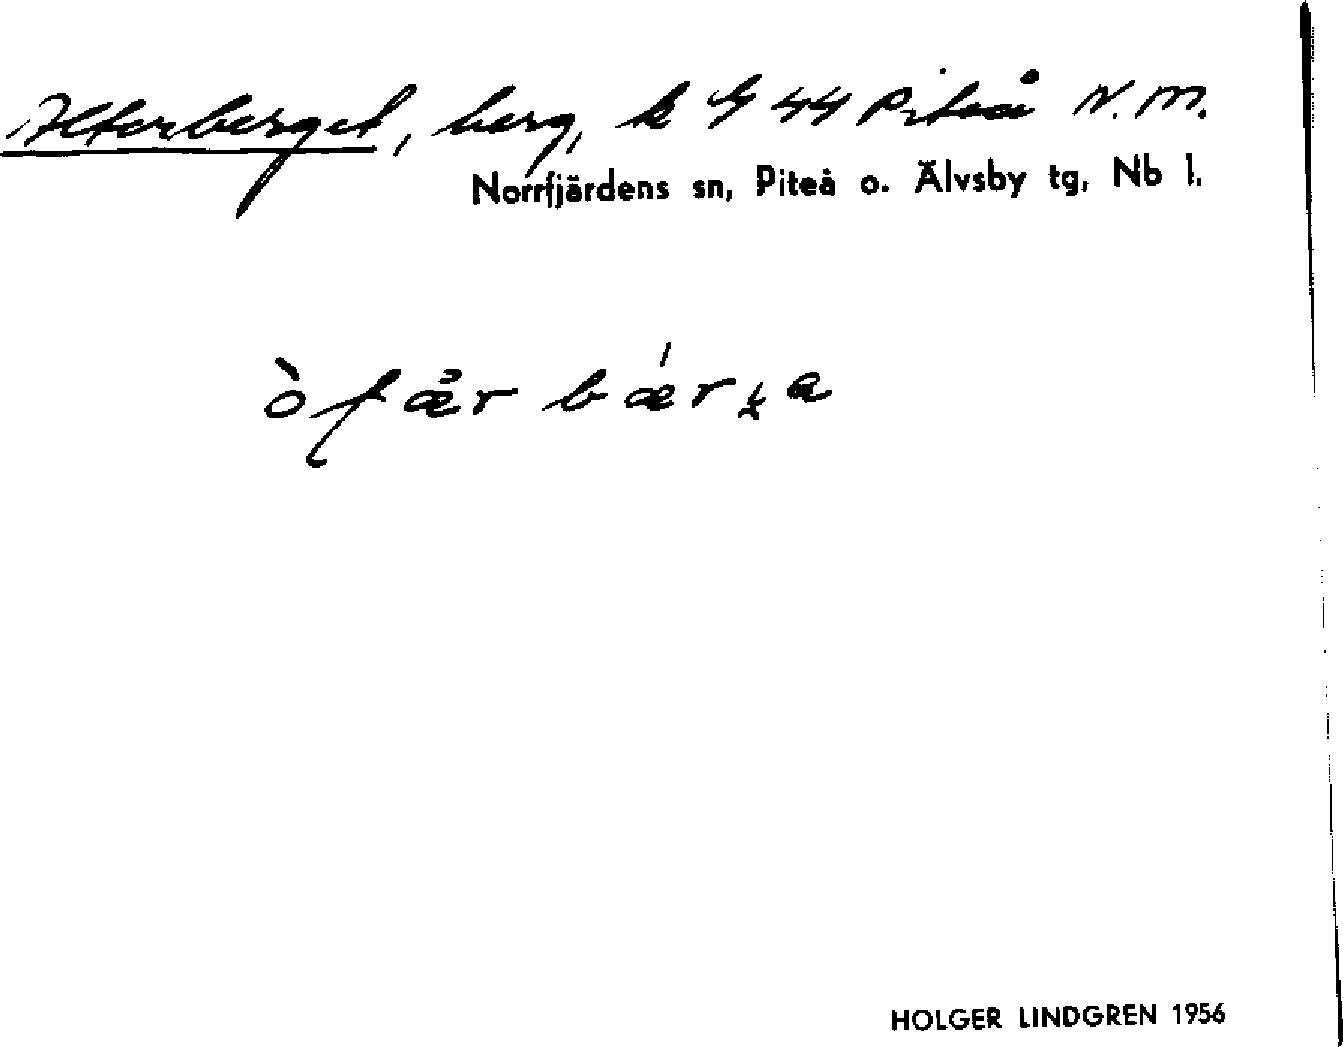 Alterberget, berg, k G 44 Piteå N.M.
Norrfjärdens sn, Piteå o. Älvsby tg, Nb l.
HOLGER LINDGREN 1956